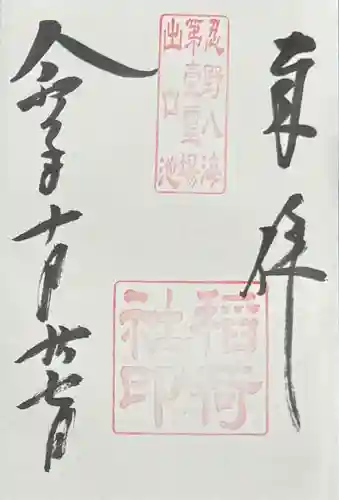 奉拝
忍野八海
第壹靈場
出口池
稲荷
社印
令和年十月廿七日